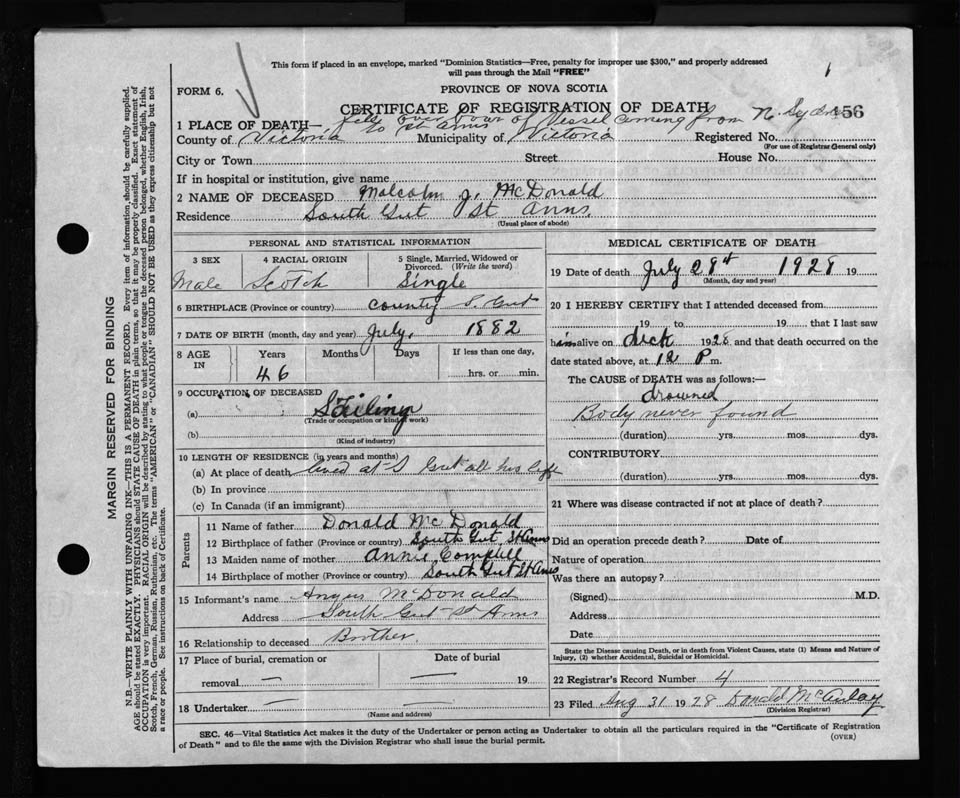 This form if placed in an envelope, marked "Dominion Statistics—Free, penalty for improper use $300," and properly addressed
will pass through the Mail "FREE"
FORM 6.
PROVINCE OF NOVA SCOTIA
CERTIFICATE OF REGISTRATION OF DEATH
fell over of Vessel Coming from N. Sydney 156
1 PLACE OF DEATH— to St Anns
County of Victoria Municipality of Victoria Registered No.
(For use of Registrar General only)
City or Town Street House No.
If in hospital or institution, give name
2 NAME OF DECEASED Malcolm J. McDonald
Residence South Gut St Anns.
(Usual place of abode)
PERSONAL AND STATISTICAL INFORMATION
3 SEX 4 RACIAL ORIGIN 5 Single, Married, Widowed or
Divorced. (Write the word)
Male Scotch Single
6 BIRTHPLACE (Province or country) County S. Gut
7 DATE OF BIRTH (month, day and year) July, 1882
8 AGE IN Years Months Days If less than one day,
46 hrs. or min.
9 OCCUPATION OF DECEASED
(a)
(Trade or occupation or kind of work)
(b)
(Kind of industry)
10 LENGTH OF RESIDENCE (in years and months)
(a) At place of death lived at S Gut all his life
(b) In province
(c) In Canada (if an immigrant)
Parents
11 Name of father Donald McDonald
12 Birthplace of father (Province or country) South Gut, St Anns
13 Maiden name of mother Annie Campbell
14 Birthplace of mother (Province or country) South Gut St Anns
15 Informant's name Angus McDonald
Address South Gut St Anns
16 Relationship to deceased Brother
17 Place of burial, cremation or Date of burial
removal — — 19
18 Undertaker — —
(Name and address)
MEDICAL CERTIFICATE OF DEATH
19 Date of death July 28th 1928 19
(Month, day and year)
20 I HEREBY CERTIFY that I attended deceased from
19 to 19 that I last saw
him alive on deck 1928 and that death occurred on the
date stated above, at 12 P m.
The CAUSE of DEATH was as follows:—
drowned
Body never found
(duration) yrs. mos. dys.
CONTRIBUTORY
(duration) yrs. mos. dys.
21 Where was disease contracted if not at place of death?
Did an operation precede death? Date of
Nature of operation
Was there an autopsy?
(Signed) M.D.
Address
Date
State the Disease causing Death, or in death from Violent Causes, state (1) Means and Nature of
Injury, (2) whether Accidental, Suicidal or Homicidal.
22 Registrar's Record Number 4
23 Filed Aug 31 1928 Donald McAulay
(Division Registrar)
SEC. 46—Vital Statistics Act makes it the duty of the Undertaker or person acting as Undertaker to obtain all the particulars required in the "Certificate of Registration
of Death" and to file the same with the Division Registrar who shall issue the burial permit. (OVER)
MARGIN RESERVED FOR BINDING
N.B.—WRITE PLAINLY WITH UNFADING INK—THIS IS A PERMANENT RECORD. Every item of information should be carefully supplied.
AGE should be stated EXACTLY. PHYSICIANS should STATE CAUSE OF DEATH in plain terms, so that it may be properly classified. Exact statement of
OCCUPATION is very important. RACIAL ORIGIN will be described by stating to what people or tongue the deceased person belonged, whether English, Irish,
Scotch, French, German, Russian, Ruthenian, etc. The terms "AMERICAN" or "CANADIAN" SHOULD NOT BE USED as they express citizenship but not
a race or people. See instructions on back of Certificate.